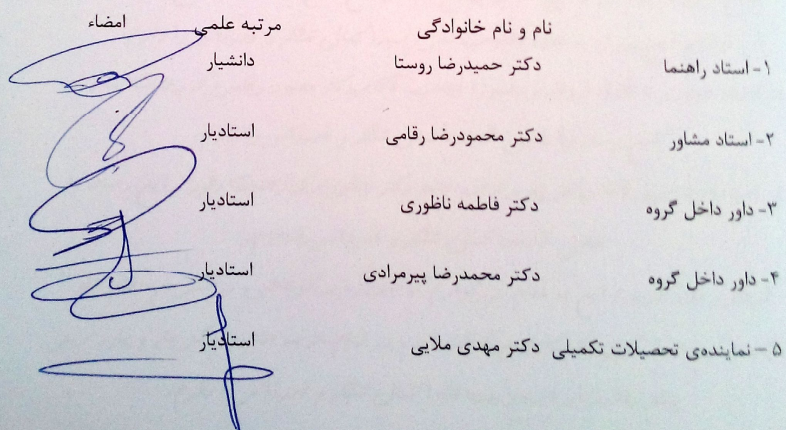 نام و نام خانوادگی مرتبه علمی امضاء
۱- استاد راهنما دکتر حمیدرضا روستا دانشیار
۲- استاد مشاور دکتر محمودرضا رقامی استادیار
۳- داور داخل گروه دکتر فاطمه ناظوری استادیار
۴- داور داخل گروه دکتر محمدرضا پیرمرادی استادیار
۵- نماینده‌ی تحصیلات تکمیلی دکتر مهدی ملایی استادیار